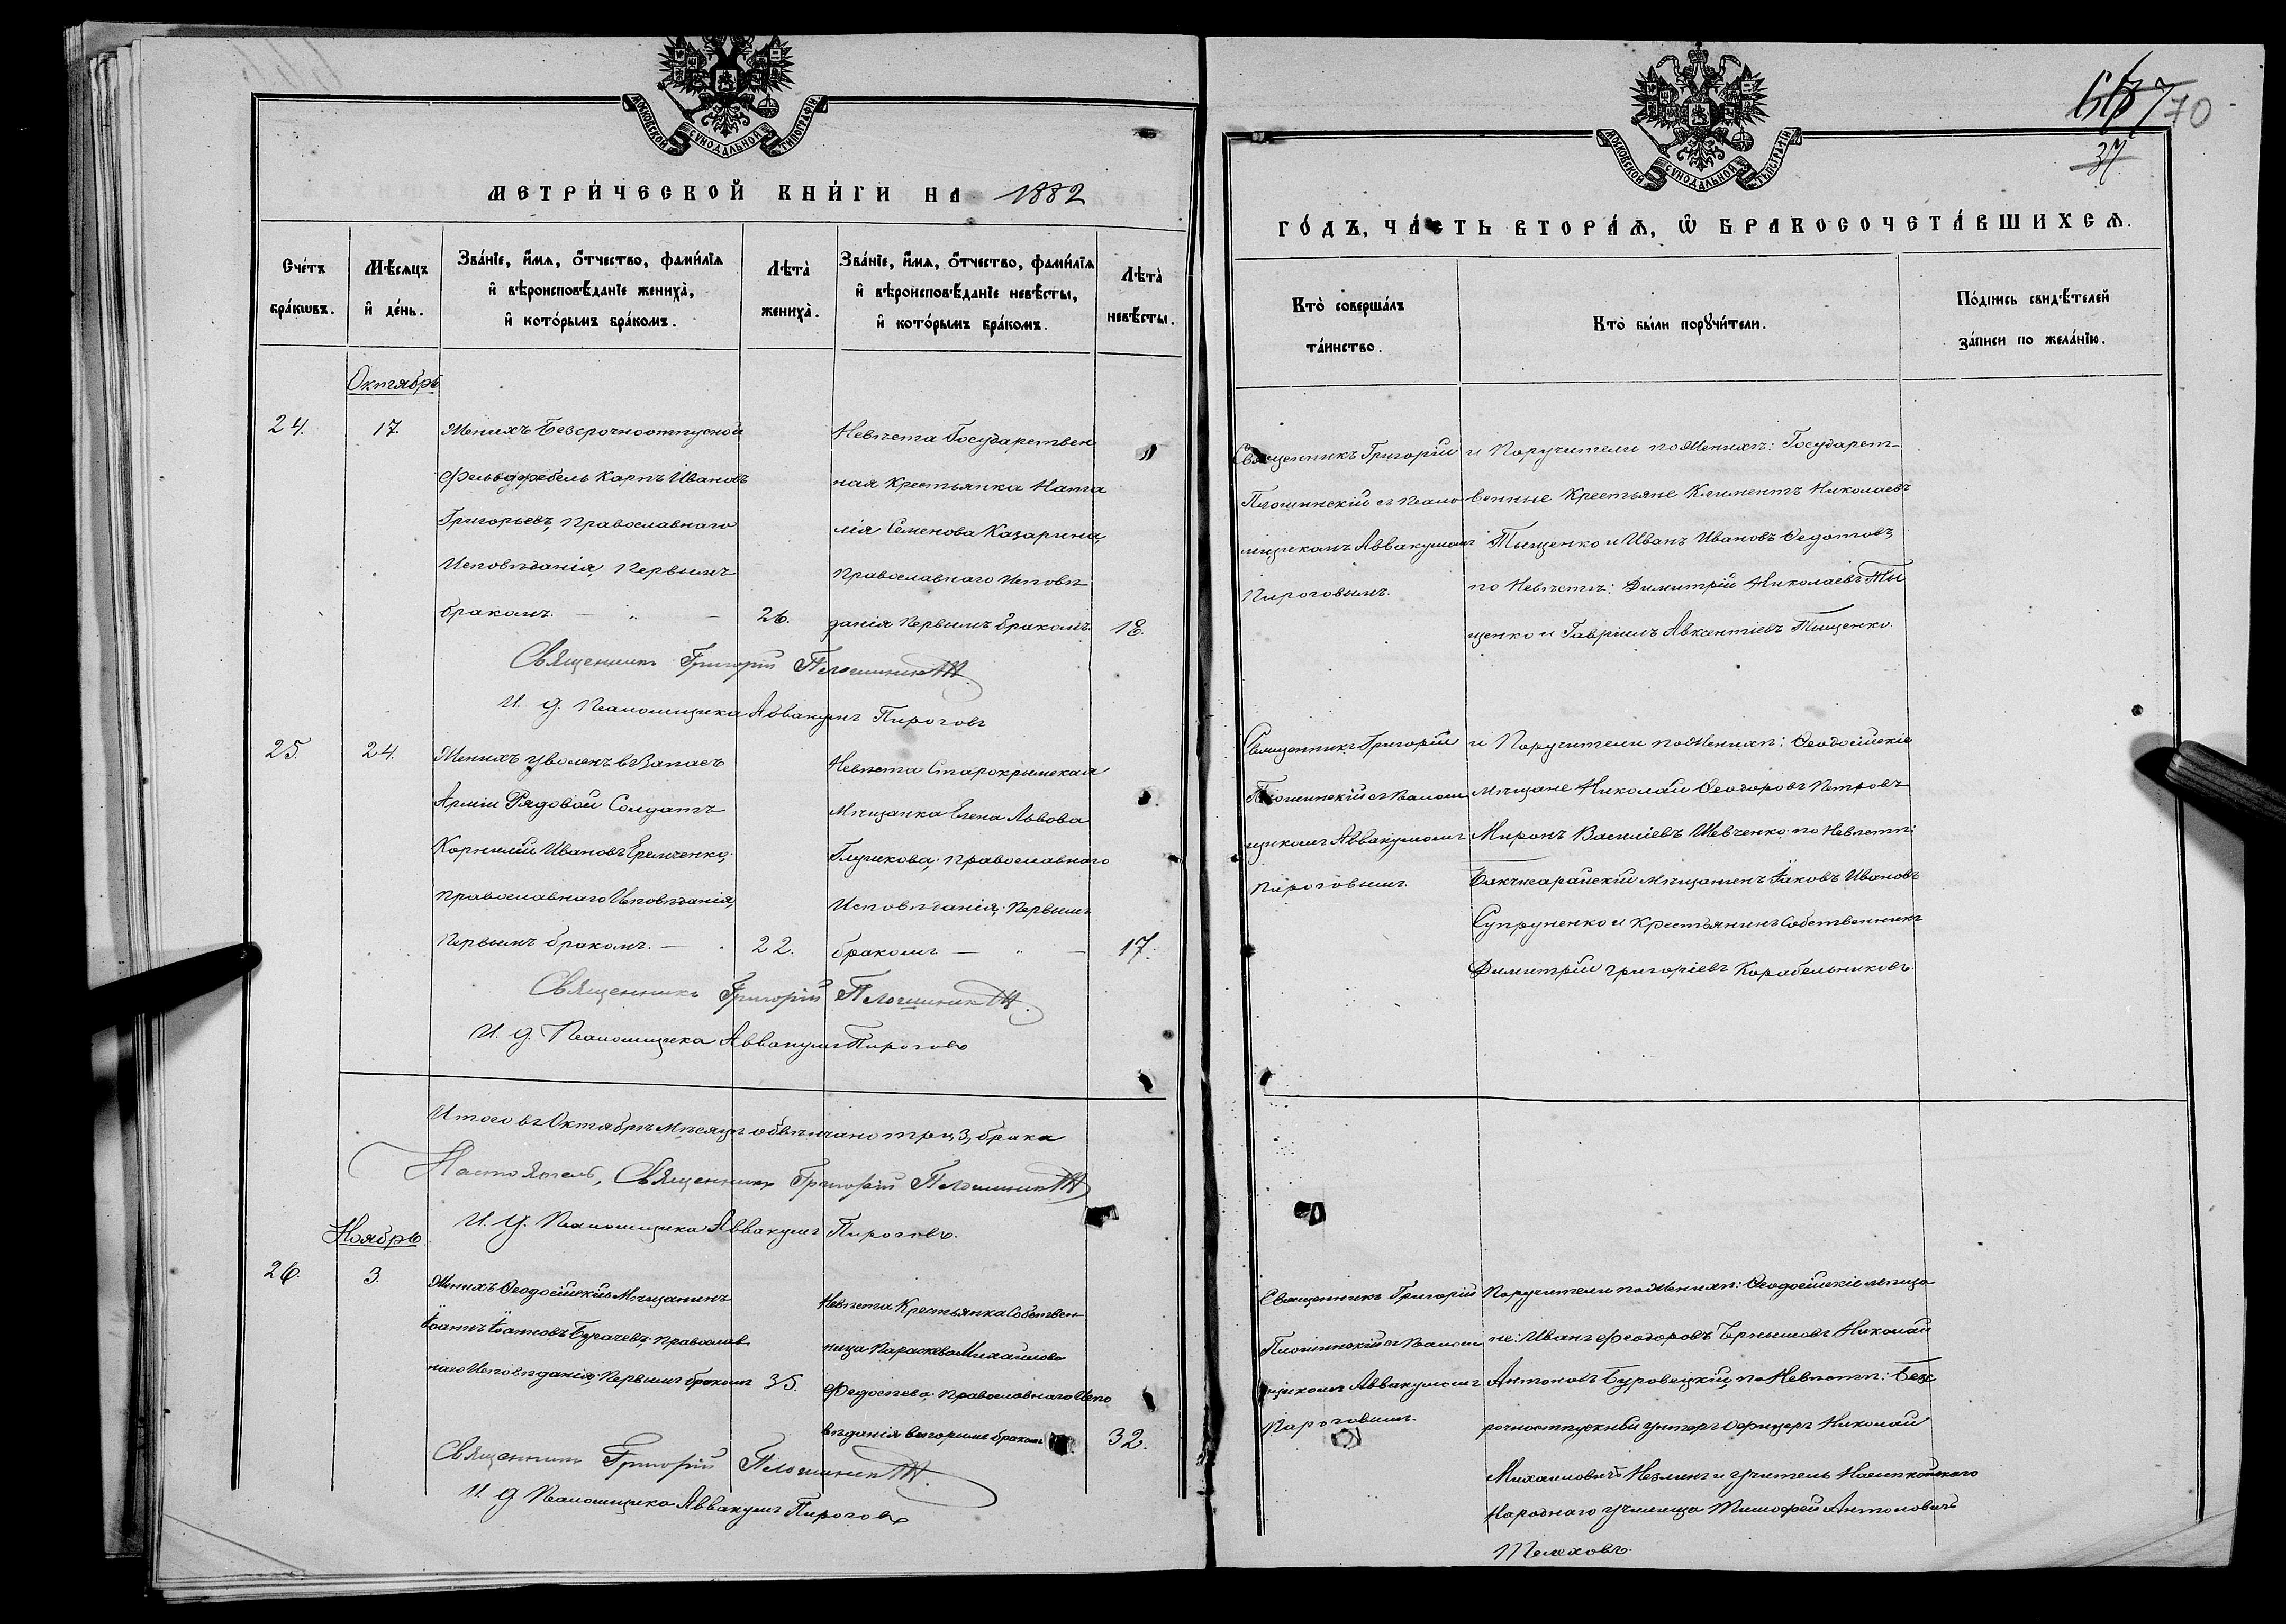 МОСКОВСКОЙ СѴНОДАЛЬНОЙ ТИПОГРАФІИ
МЕТРИ́ЧЕСКОЙ КНИ́ГИ НА 1882
Сче́тъ бра́кѡвъ.
Мѣ́сяцъ и҆ де́нь.
Зва́нїе, и҆́мѧ, ѻ҆́тчество, фами́лїѧ и҆ вѣроисповѣ́данїе жениха̀, и҆ кото́рымъ бра́комъ.
Лѣта̀ жениха̀.
Зва́нїе, и҆́мѧ, ѻ҆́тчество, фами́лїѧ и҆ вѣроисповѣ́данїе невѣ́сты, и҆ кото́рымъ бра́комъ.
Лѣта̀ невѣ́сты.
Октябрь
24.
17.
Женихъ Безсрочноотпускной
Фельдфебель Карпъ Ивановъ
Григорьевъ, Православнаго
Исповѣданія, Первымъ
бракомъ. — „ —
26.
Невѣста Государствен
ная Крестьянка Ната
лія Семенова Казарина,
Православнаго Исповѣ
данія Первымъ бракомъ.
18.
Священникъ Григорій Плошинскій
И. д. Псаломщика Аввакумъ Пироговъ
25.
24.
Женихъ уволенъ въ Запасъ
Арміи Рядовой Солдатъ
Корнилій Ивановъ Еремченко,
Православнаго Исповѣданія,
Первымъ бракомъ. —
22.
Невѣста Старокрымская
Мѣщанка Елена Львова
Глушкова, Православнаго
Исповѣданія, Первымъ
бракомъ — „ —
17.
Священникъ Григорій Плошинскій
И. д. Псаломщика Аввакумъ Пироговъ
Итого въ Октябрѣ Мѣсяцѣ обвѣнчано три, 3, брака
Настоятель, Священникъ Григорій Плошинскій
И. д. Псаломщика Аввакумъ Пироговъ.
Ноябрь
26.
3.
Женихъ Ѳеодосійскій Мѣщанинъ
Іоаннъ Іоанновъ Бурачевъ, Православ
наго Исповѣданія, Первымъ бракомъ
35.
Невѣста Крестьянка Собствен
ница Параскева Михайлова
Федосѣева, Православнаго Испо
вѣданія вторымъ бракомъ
32.
Священникъ Григорій Плошинскій
И. д Псаломщика Аввакумъ Пироговъ
70
37
МОСКОВСКОЙ СѴНОДАЛЬНОЙ ТИПОГРАФІИ
ГО́ДЪ, ЧА́СТЬ ВТОРА́Ѧ, Ѽ БРАКОСОЧЕТА́ВШИХСѦ.
Кто̀ соверша́лъ та́инство.
Кто̀ бы́ли порꙋчи́тели.
По́дпись свидѣ́телей за́писи по жела́нїю.
Священникъ Григорій
Плошинскій съ Псало
мщикомъ Аввакумомъ
Пироговымъ.
и Поручители по Женихѣ: Государст-
венные Крестьяне Климентъ Николаевъ
Тыщенко и Иванъ Ивановъ Ѳедотовъ,
по Невѣстѣ: Димитрій Николаевъ Ты
щенко и Гавріилъ Авксентіевъ Тыщенко.
Священникъ Григорій
Плошинскій съ Псалом
щикомъ Аввакумомъ
Пироговымъ.
и Поручители по Женихѣ: Ѳеодосійскіе
мѣщане Николай Ѳеодоровъ Петровъ
Миронъ Василіевъ Шевченко по Невѣстѣ:
Бакчисарайскій мѣщанинъ Іаковъ Ивановъ
Супруненко и Крестьянинъ Собственникъ
Димитрій Григоріевъ Корабельниковъ.
Священникъ Григорій
Плошинскій съ Псалом
щикомъ Аввакумомъ
Пироговымъ.
Поручители по Женихѣ: Ѳеодосійскіе мѣща
не: Иванъ Феодоровъ Чернышовъ Николай
Антоновъ Буровицкій, по Невѣстѣ: Безс
рочноотпускный унтеръ Офицеръ Николай
Михаиловичъ и Учитель
Народнаго Училища Тимофей Антоновичъ
Телеховъ.